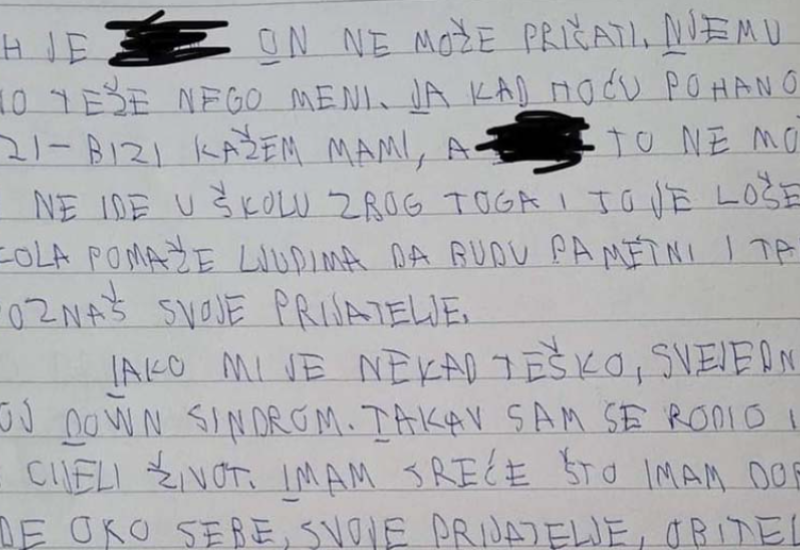 H JE ON NE MOŽE PRIČATI. NJEMU
TEŽE NEGO MENI. JA KAD HOĆU POHANO
ZI-BIZI KAŽEM MAMI, A TO NE MO
NE IDE U ŠKOLU ZBOG TOGA I TO JE LOŠE
KOLA POMAŽE LJUDIMA DA BUDU PAMETNI I TA
OZNAŠ SVOJE PRIJATELJE.
IAKO MI JE NEKAD TEŠKO, SVEJEDN
OJ DOWN SINDROM. TAKAV SAM SE RODIO I
CIJELI ŽIVOT. IMAM SREĆE ŠTO IMAM DOB
DE OKO SEBE, SVOJE PRIJATELJE, OBITEL